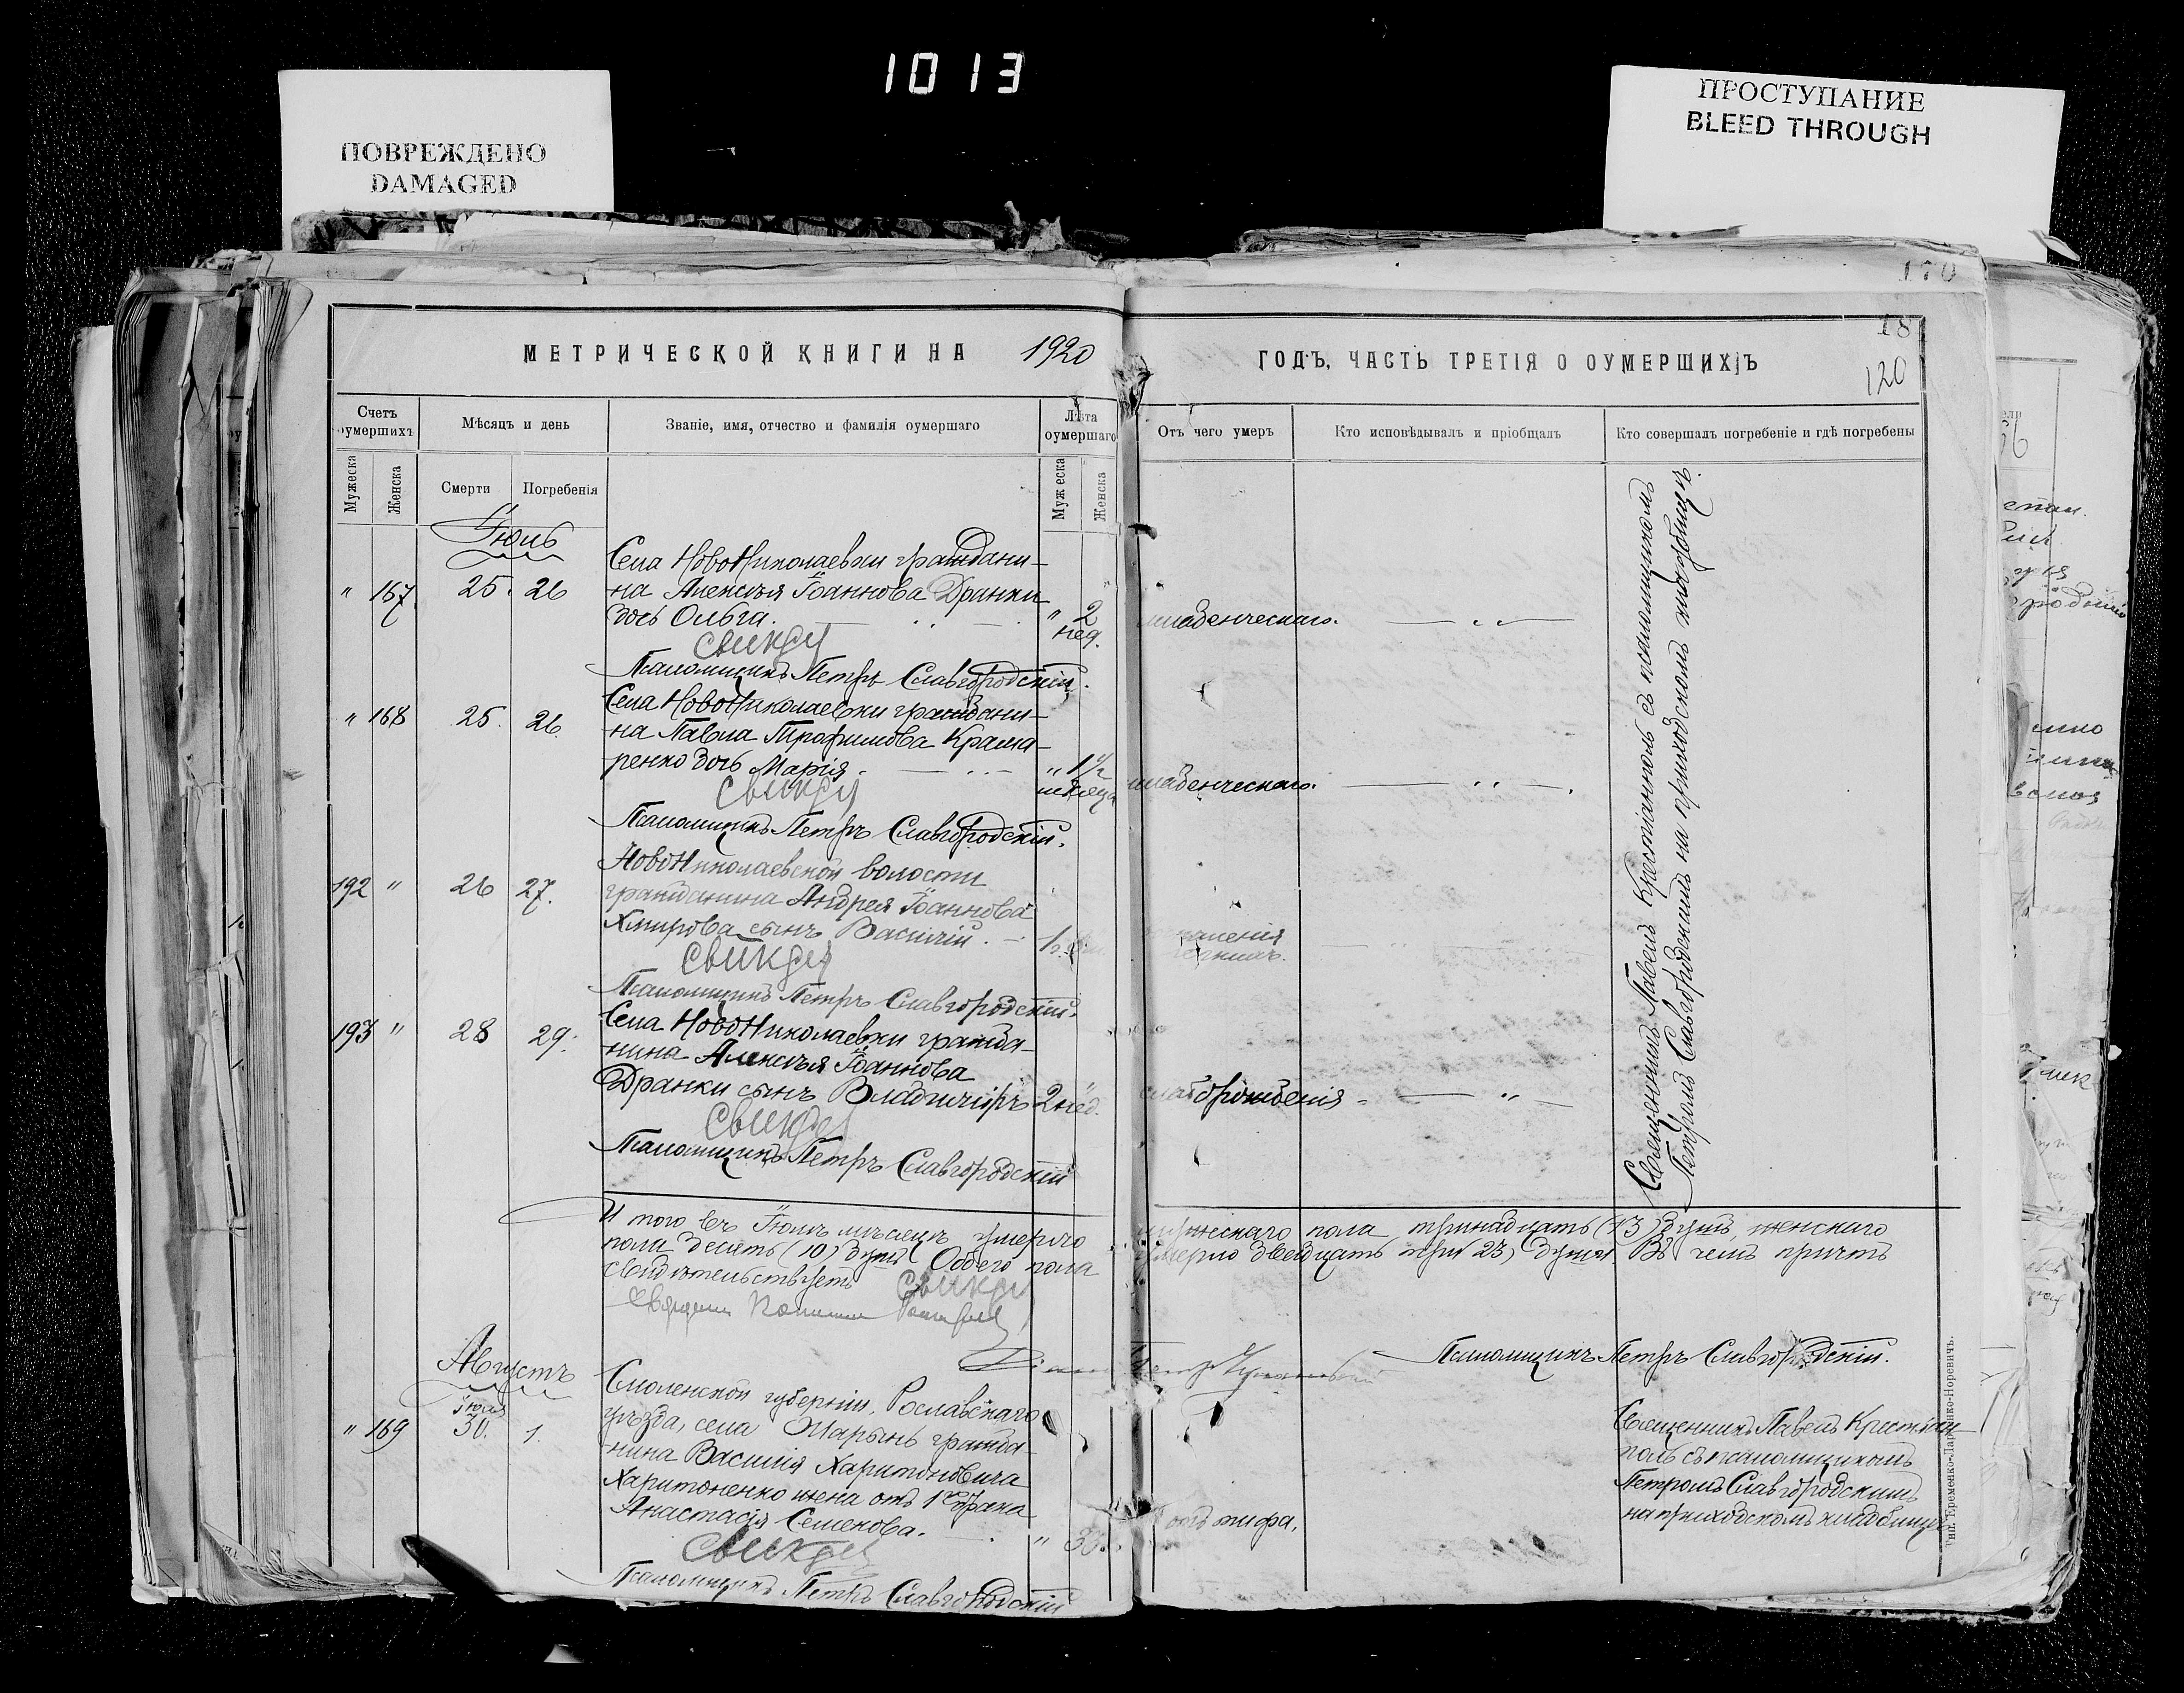 1013
ПОВРЕЖДЕНО
DAMAGED
ПРОСТУПАНИЕ
BLEED THROUGH
170
18
МЕТРИЧЕСКОЙ КНИГИ НА 1920
ГОДЪ, ЧАСТЬ ТРЕТІЯ О ОУМЕРШИХЪ
120
Счетъ оумершихъ
Мѣсяцъ и день
Званіе, имя, отчество и фамилія оумершаго
Лѣта оумершаго
Отъ чего умеръ
Кто исповѣдывалъ и пріобщалъ
Кто совершалъ погребеніе и гдѣ погребены
Мужеска
Женска
Смерти
Погребенія
Мужеска
Женска
Іюль
Села НовоНиколаевки граждани-
" 167 25. 26 на Алексѣя Іоаннова Дранки
дочь Ольга. " 2 нед. младенческаго.
Псаломщикъ Петръ Славгородскій.
Села НовоНиколаевки граждани-
" 168 25. 26. на Павла Трофимова Крама-
ренко дочь Марія. " 1 1/2 мѣсяца младенческаго.
Псаломщикъ Петръ Славгородскій.
НовоНиколаевской волости
192 " 26 27. гражданина Андрея Іоаннова
Хмирова сынъ Василій.
Псаломщикъ Петръ Славгородскій.
Села НовоНиколаевки гражда-
193 " 28 29. нина Алексѣя Іоаннова
Дранки сынъ Владимиръ 2 нед. слаборожденія
Псаломщикъ Петръ Славгородскій
Священникъ Павелъ Крестіанполь съ псаломщикомъ
Петромъ Славгородскимъ на приходскомъ кладбищѣ.
И того въ Іюлѣ мѣсяцѣ умерло мужескаго пола тринадцать (13) душъ, женскаго
пола десять (10) душъ Обоего пола умерло двадцать три (23) души. Въ чемъ причтъ
свидѣтельствуетъ
Псаломщикъ Петръ Славгородскій.
Августъ
Смоленской губерніи, Рославскаго
Іюля
" 169 30. 1. уѣзда, села Шарынь гражда-
нина Василія Харитоновича
Харитоненко жена отъ 1го брака
Анастасія Семенова. " отъ тифа.
Псаломщикъ Петръ Славгородскій
Священникъ Павелъ Крестіан-
поль съ псаломщикомъ
Петромъ Славгородскимъ
на приходскомъ кладбищѣ
Тип. Еременко-Ларченко-Норевичъ.